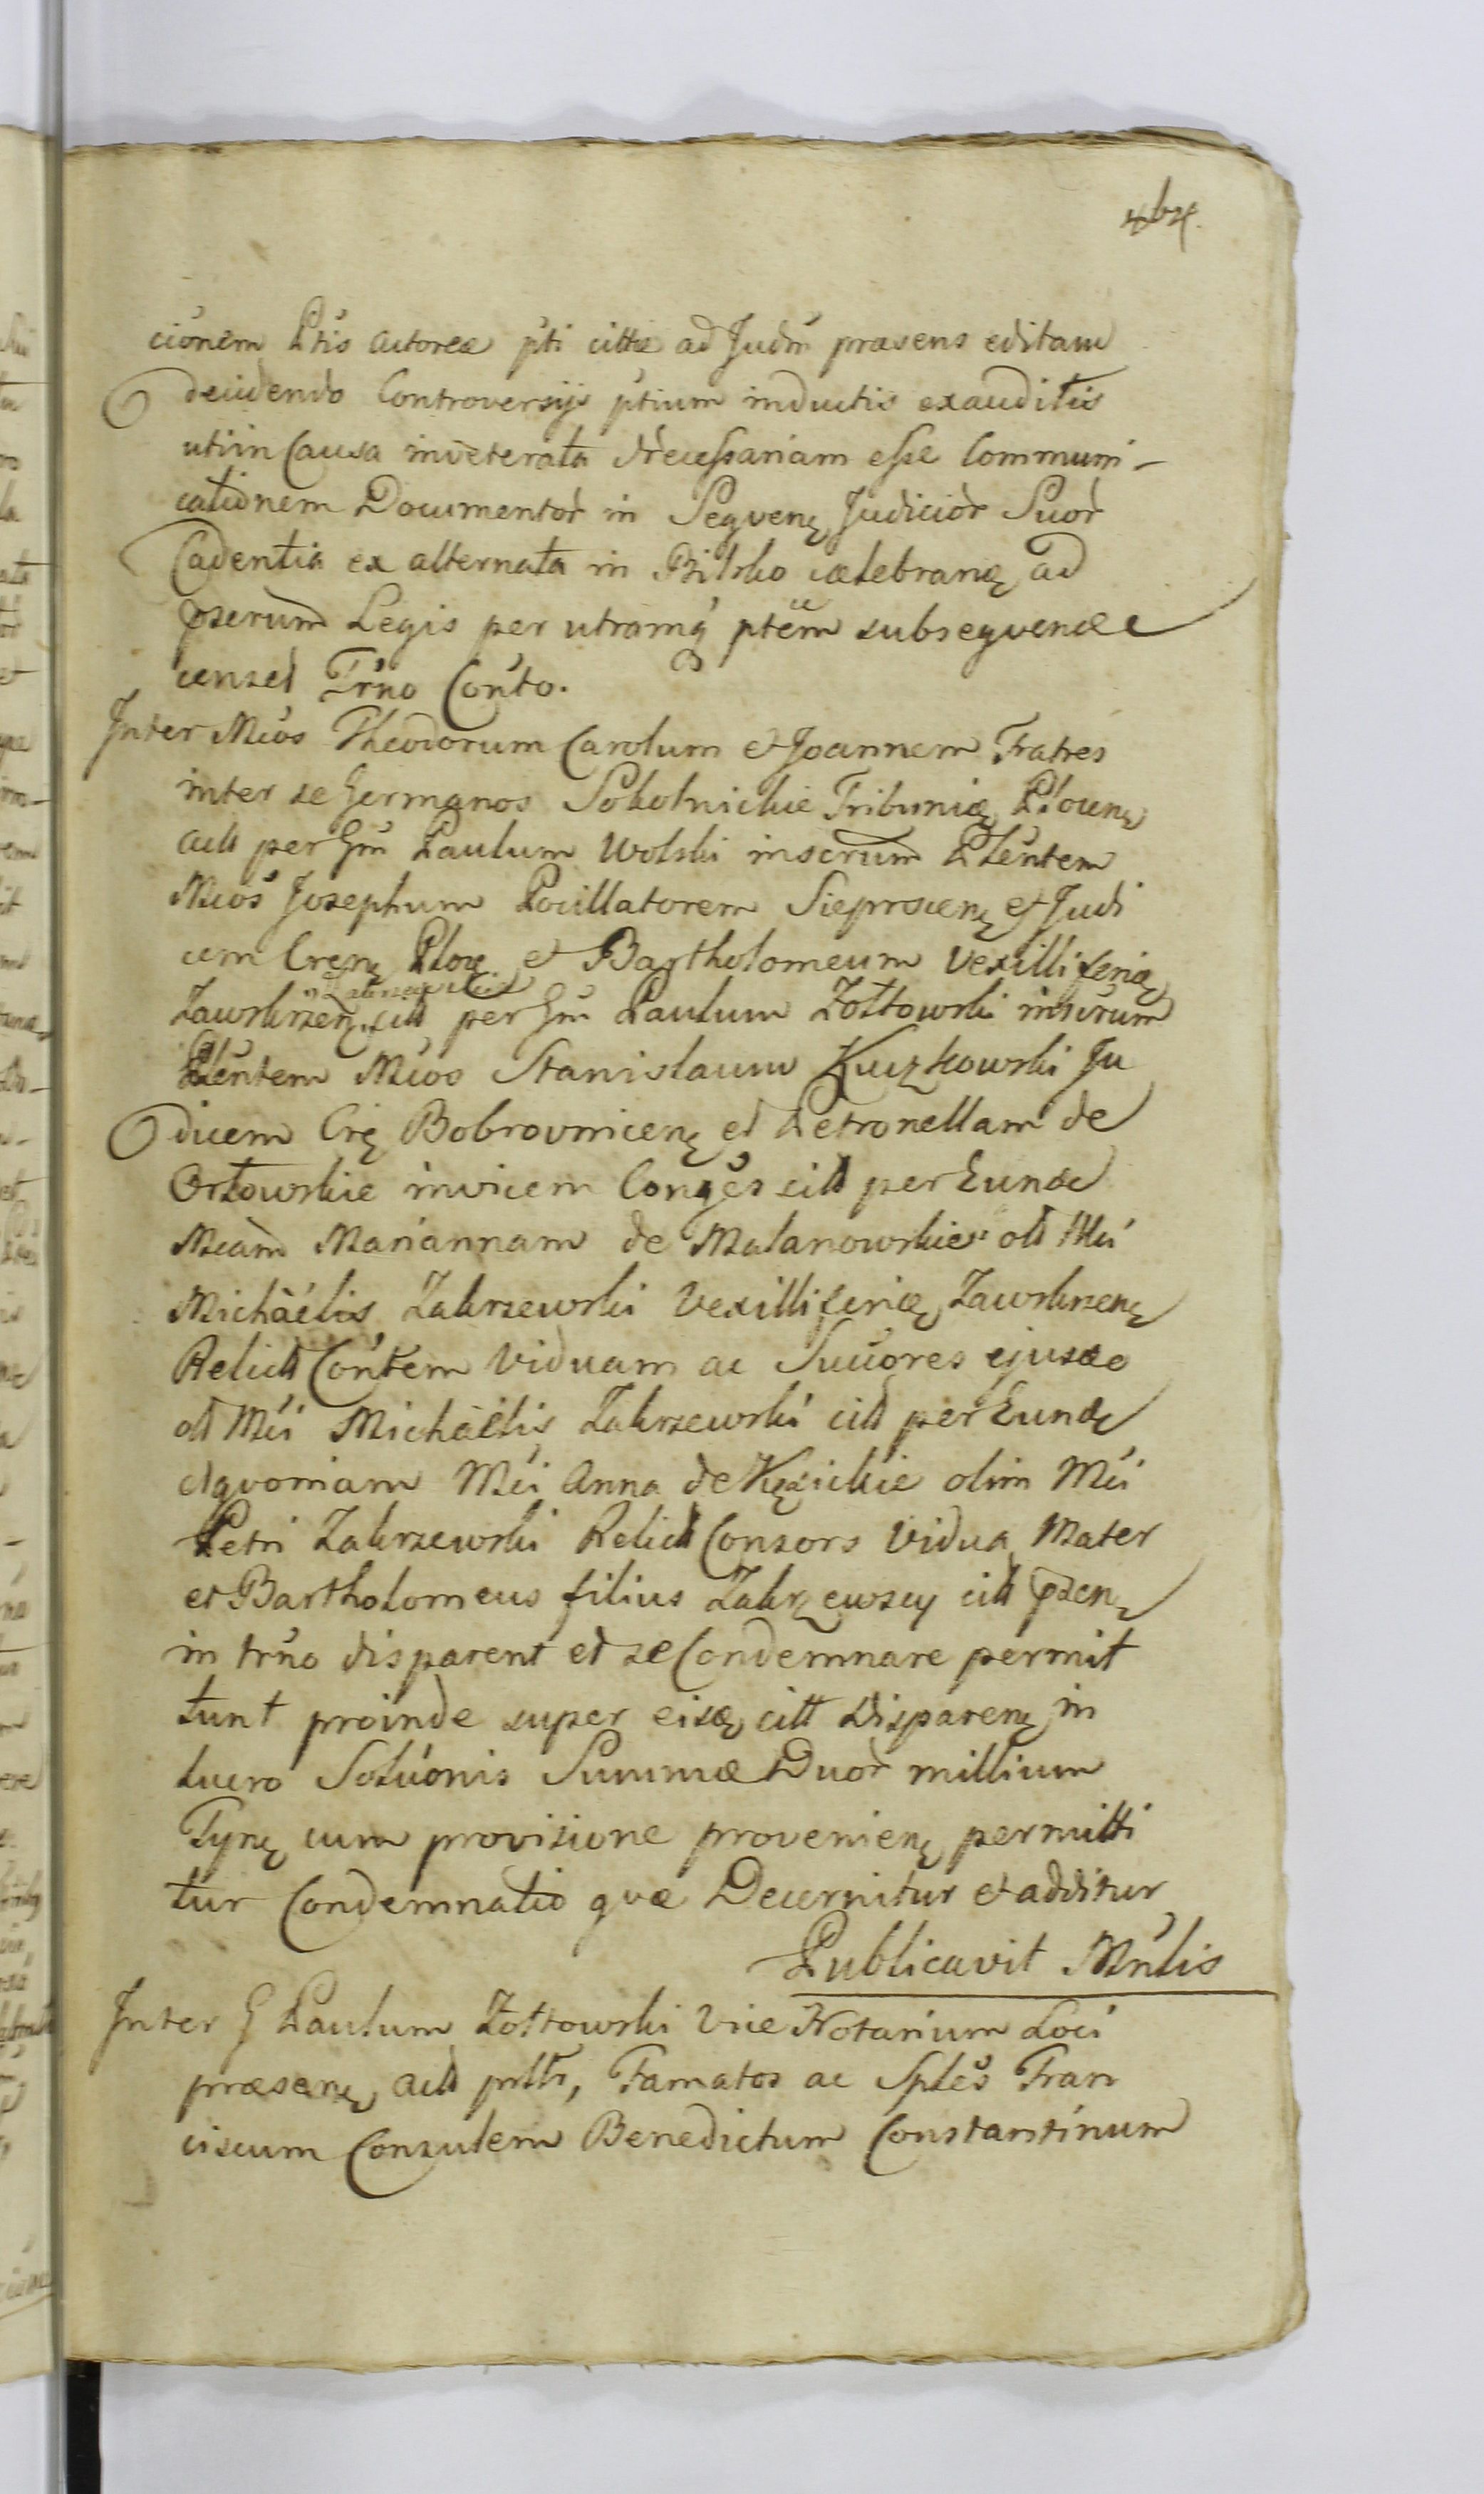 cionem Ptis actoreæ pti cittæ ad Judm præsens editam
decidendo Controversijs ptium inductis exauditis
uti in Causa inveterata Necessariam esse Communi-
cationem Documentor in Seqvenę Judicior Suor
Cadentia ex alternata in Bilsko cælebranę ad
pserum Legis per utramq ptem subseqvende
censet Trno Conto.
Inter Mcos Theodorum Carolum et Joannem Fratres
inter se Germanos Sokolnickie Tribunię Plocenę
act per Gm Paulum Wolski inscrum Plentem
Mcos Josephum Pocillatorem Sieprcenę et Judi
cem Crenę Ploc. et Bartholomeum Vexillifenię
Zawskrzenę cit per Gm Paulum Zołtowski inscrum
Plentem Mcos Stanislaum Kuczkowski Ju
dicem Crę Bobrovnicenę et Petronellam de
Orłowskie invicem Conges cit per Eunde
Mcam Mariannam de Malanowskie olt Mci
Michaëlis Zakrzewski Vexillifenię Zawskrzenę
Relict Contem Viduam ac Succores ejusde
olt Mci Michaëlis Zakrzewski cit per Eunde
et qvoniam Mci Anna de Kęsickie olim Mci
Petri Zakrzewski Relict Consors Vidua Mater
et Bartholomeus filius Zakrzewscy cit psenę
in trno disparent et se Condemnare permit
tunt proinde super eisdę citt Disparenę in
lucro Soluonis Summæ Duor millium
Tynę cum provisione provenienę permitti
tur Condemnatio qvæ Decernitur et additur
Publicavit Mnlis
Inter G Paulum Zołtowski Vice Notarium Loci
præsenę act plttr, Famatos ac Sptes Fran
ciscum Consulem Benedictum Constantinum